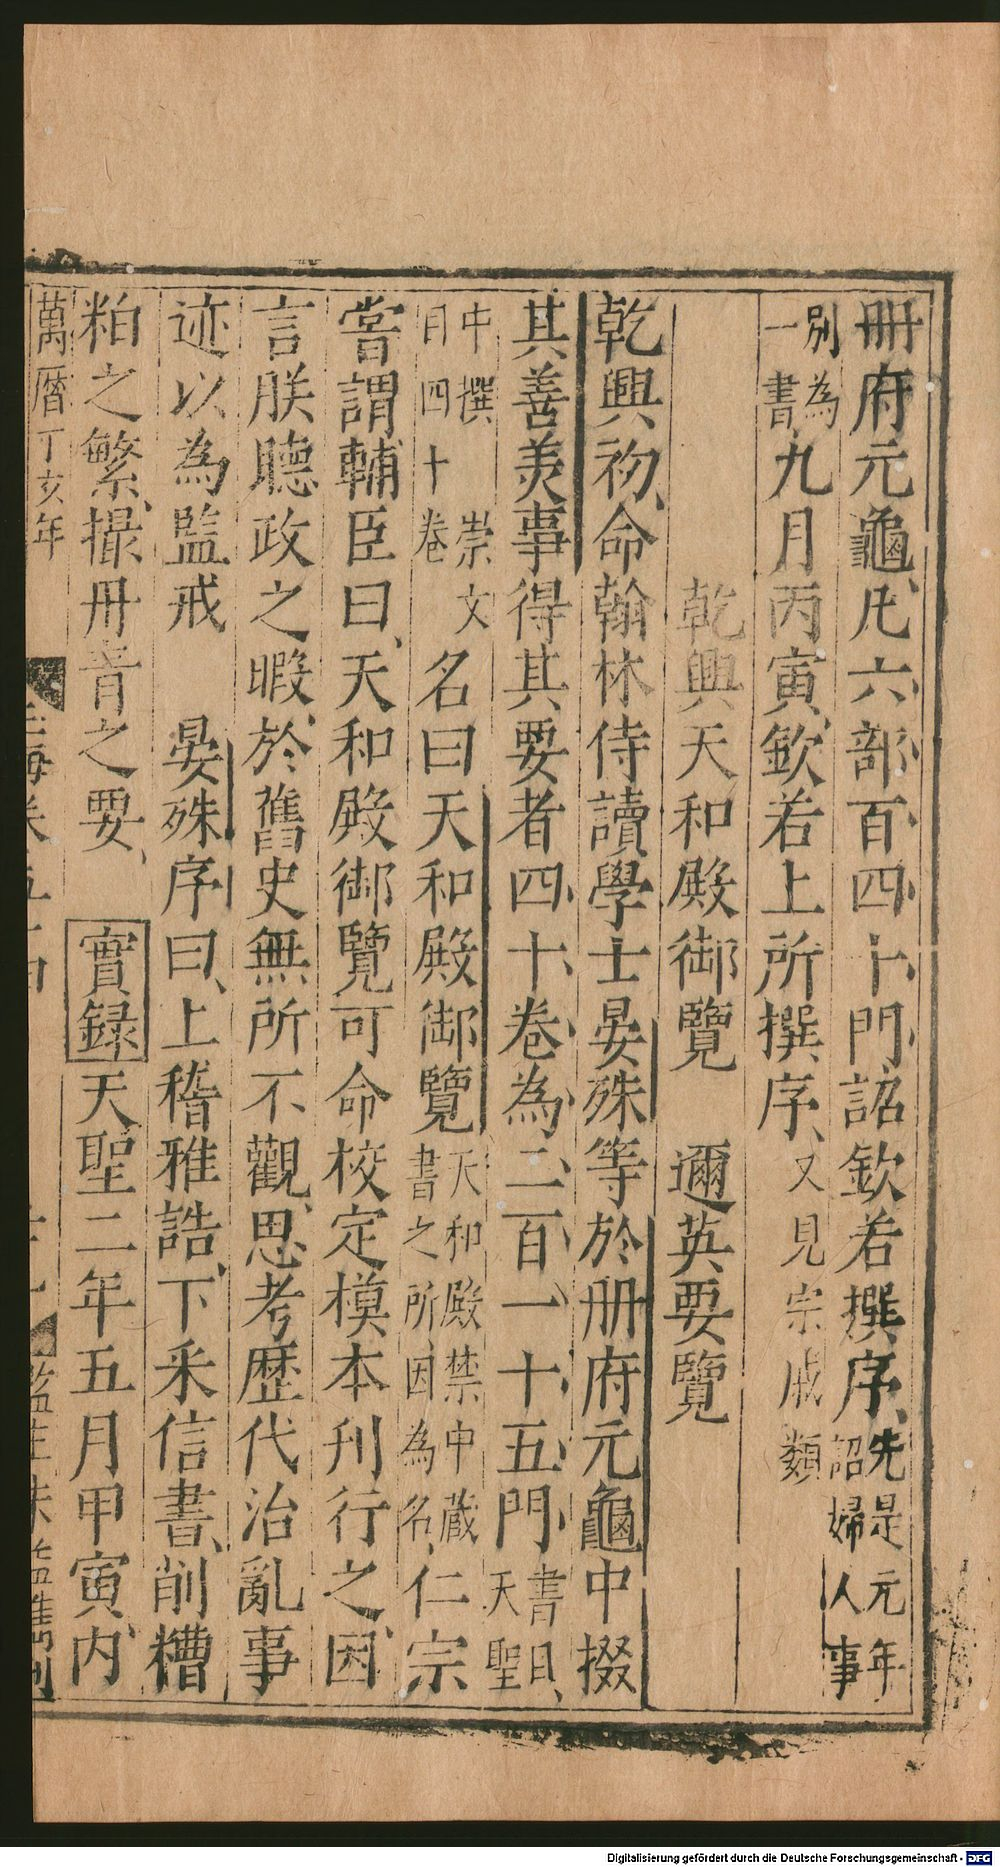 冊府元龜、凡六部百四十門詔欽若撰序、先是元年詔婦人事
別為一書九月丙寅、欽若上所撰序、又見宗戚類
乾興天和殿御覽　邇英要覽
乾興初、命翰林侍讀學士晏殊等於册府元龜中掇
其善美事得其要者四十卷為二百一十五門、書目、天聖
中撰崇文目四十卷名曰天和殿御覽天和殿禁中藏書之所因為名、仁宗
嘗謂輔臣曰、天和殿御覽可命校定模本刋行之、因
言朕聽政之暇、於舊史無所不觀、思考歷代治亂事
迹以為監戒　晏殊序曰、上稽雅誥、下釆信書、削糟
粕之繁、撮冊青之要、實録天聖二年五月甲寅、内
萬曆丁亥年
Digitalisierung gefördert durch die Deutsche Forschungsgemeinschaft - DFG